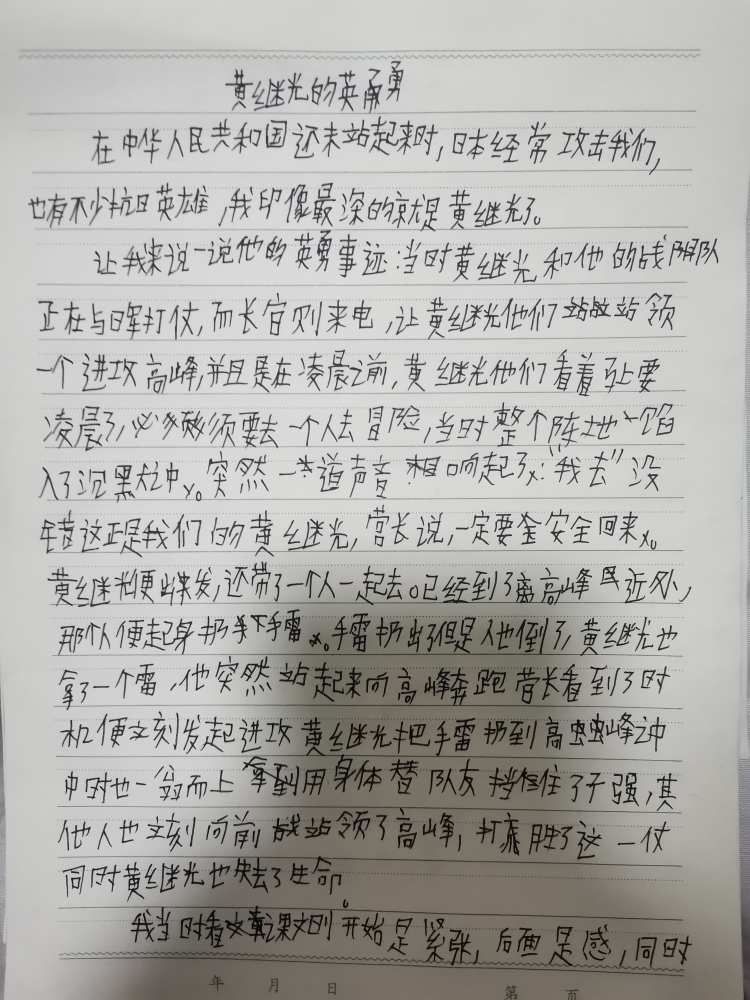 黄继光的英勇
在中华人民共和国还未站起来时,日本经常攻击我们,
也有不少抗日英雄,我印像最深的就是黄继光了。
让我来说一说他的英勇事迹:当时黄继光和他的战队
正在与晖打仗,而长官则来电,让黄继光他们站领
一个进攻高峰,并且是在凌晨之前,黄继光他们看着马上要
凌晨了,必须要去一个人去冒险,当时整个阵地一陷
入了沉黑之中。突然一道声音响起了:"我去"没
错这正是我们的黄继光,营长说,一定要安全回来。
黄继光便出发,还带了一个人一起去。已经到了离高峰近处,
那个人便起身扔下手雷。手雷扔出了但是人他倒了,黄继光也
拿了一个雷,他突然站起来向高峰奔跑营长看到了时
机便立刻发起进攻黄继光把手雷扔到高峰之冲
中时他一而上用身体替队友挡住了子强,其
他人也立刻向前站领了高峰,打胜了这一仗
同时黄继光也失去了生命。
我当时看课文则开始是紧张,后面是感,同时
年 月 日 第 页